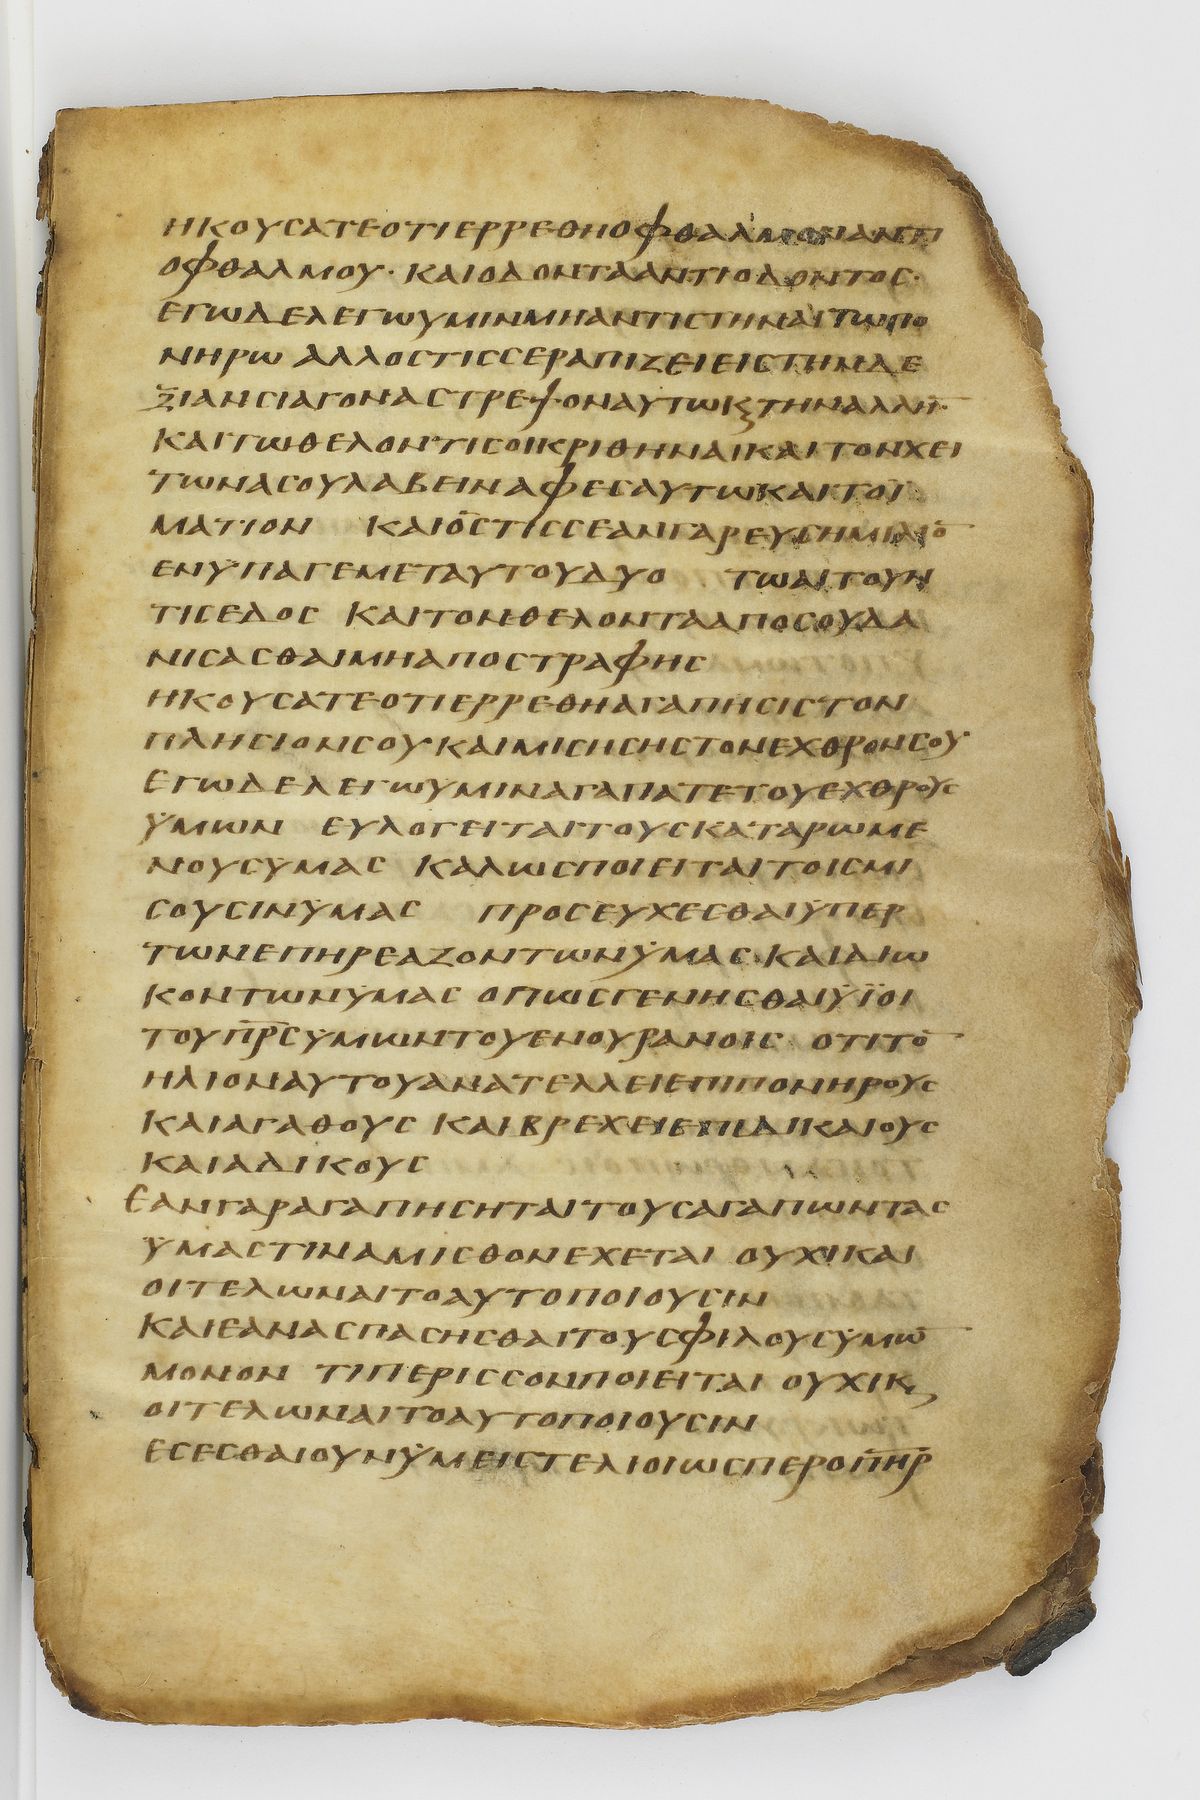 ΗΚΟΥСΑΤΕΟΤΙΕΡΡΕΘΗΟΦΘΑΛΜΟΝΑΝΤΙ
ΟΦΘΑΛΜΟΥ· ΚΑΙΟΔΟΝΤΑΑΝΤΙΟΔΟΝΤΟС·
ΕΓΩΔΕΛΕΓΩΥΜΙΝΜΗΑΝΤΙСΤΗΝΑΙΤΩΠΟ
ΝΗΡΩ ΑΛΛΟСΤΙССΕΡΑΠΙΖΕΙΕΙСΤΗΝΔΕ
ΞΙΑΝСΙΑΓΟΝΑСΤΡΕΨΟΝΑΥΤΩΚϚΤΗΝΑΛΛΗ̅
ΚΑΙΤΩΘΕΛΟΝΤΙСΟΙΚΡΙΘΗΝΑΙΚΑΙΤΟΝΧΕΙ
ΤΩΝΑСΟΥΛΑΒΕΙΝΑΦΕСΑΥΤΩΚΑΙΤΟΙ
ΜΑΤΙΟΝ ΚΑΙΟСΤΙССΕΑΝΓΑΡΕΥСΗΜΙΛΙΟ̅
ΕΝΫΠΑΓΕΜΕΤΑΥΤΟΥΔΥΟ ΤΩΑΙΤΟΥΝ
ΤΙСΕΔΟС ΚΑΙΤΟΝΘΕΛΟΝΤΑΑΠΟСΟΥΔΑ
ΝΙСΑСΘΑΙΜΗΑΠΟСΤΡΑΦΗС
ΗΚΟΥСΑΤΕΟΤΙΕΡΡΕΘΗΑΓΑΠΗСΙСΤΟΝ
ΠΛΗСΙΟΝСΟΥΚΑΙΜΙСΗСΗСΤΟΝΕΧΘΡΟΝСΟΥ
ΕΓΩΔΕΛΕΓΩΥΜΙΝΑΓΑΠΑΤΕΤΟΥΕΧΘΡΟΥС
ΫΜΩΝ ΕΥΛΟΓΕΙΤΑΙΤΟΥСΚΑΤΑΡΩΜΕ
ΝΟΥСΥΜΑС ΚΑΛΩСΠΟΙΕΙΤΑΙΤΟΙСΜΙ
СΟΥСΙΝΫΜΑС ΠΡΟСΕΥΧΕСΘΑΙΫΠΕΡ
ΤΩΝΕΠΗΡΕΑΖΟΝΤΩΝΫΜΑС ΚΑΙΔΙΩ
ΚΟΝΤΩΝΫΜΑС ΟΠΩСΓΕΝΗСΘΑΙΫΪΟΙ
ΤΟΥΠ̅Ρ̅С̅ΫΜΩΝΤΟΥΕΝΟΥΡΑΝΟΙС ΟΤΙΤΟ̅
ΗΛΙΟΝΑΥΤΟΥΑΝΑΤΕΛΛΕΙΕΠΙΠΟΝΗΡΟΥС
ΚΑΙΑΓΑΘΟΥС ΚΑΙΒΡΕΧΕΙΕΠΙΔΙΚΑΙΟΥС
ΚΑΙΑΔΙΚΟΥС
ΕΑΝΓΑΡΑΓΑΠΗСΗΤΑΙΤΟΥСΑΓΑΠΩΝΤΑС
ΫΜΑСΤΙΝΑΜΙСΘΟΝΕΧΕΤΑΙ ΟΥΧΙΚΑΙ
ΟΙΤΕΛΩΝΑΙΤΟΑΥΤΟΠΟΙΟΥСΙΝ
ΚΑΙΕΑΝΑСΠΑСΗСΘΑΙΤΟΥСΦΙΛΟΥСΫΜΩ̅
ΜΟΝΟΝ ΤΙΠΕΡΙССΟΝΠΟΙΕΙΤΑΙ ΟΥΧΙΚϚ
ΟΙΤΕΛΩΝΑΙΤΟΑΥΤΟΠΟΙΟΥСΙΝ
ΕСΕСΘΑΙΟΥΝΫΜΕΙСΤΕΛΙΟΙΩСΠΕΡΟΠ̅Η̅Ρ̅